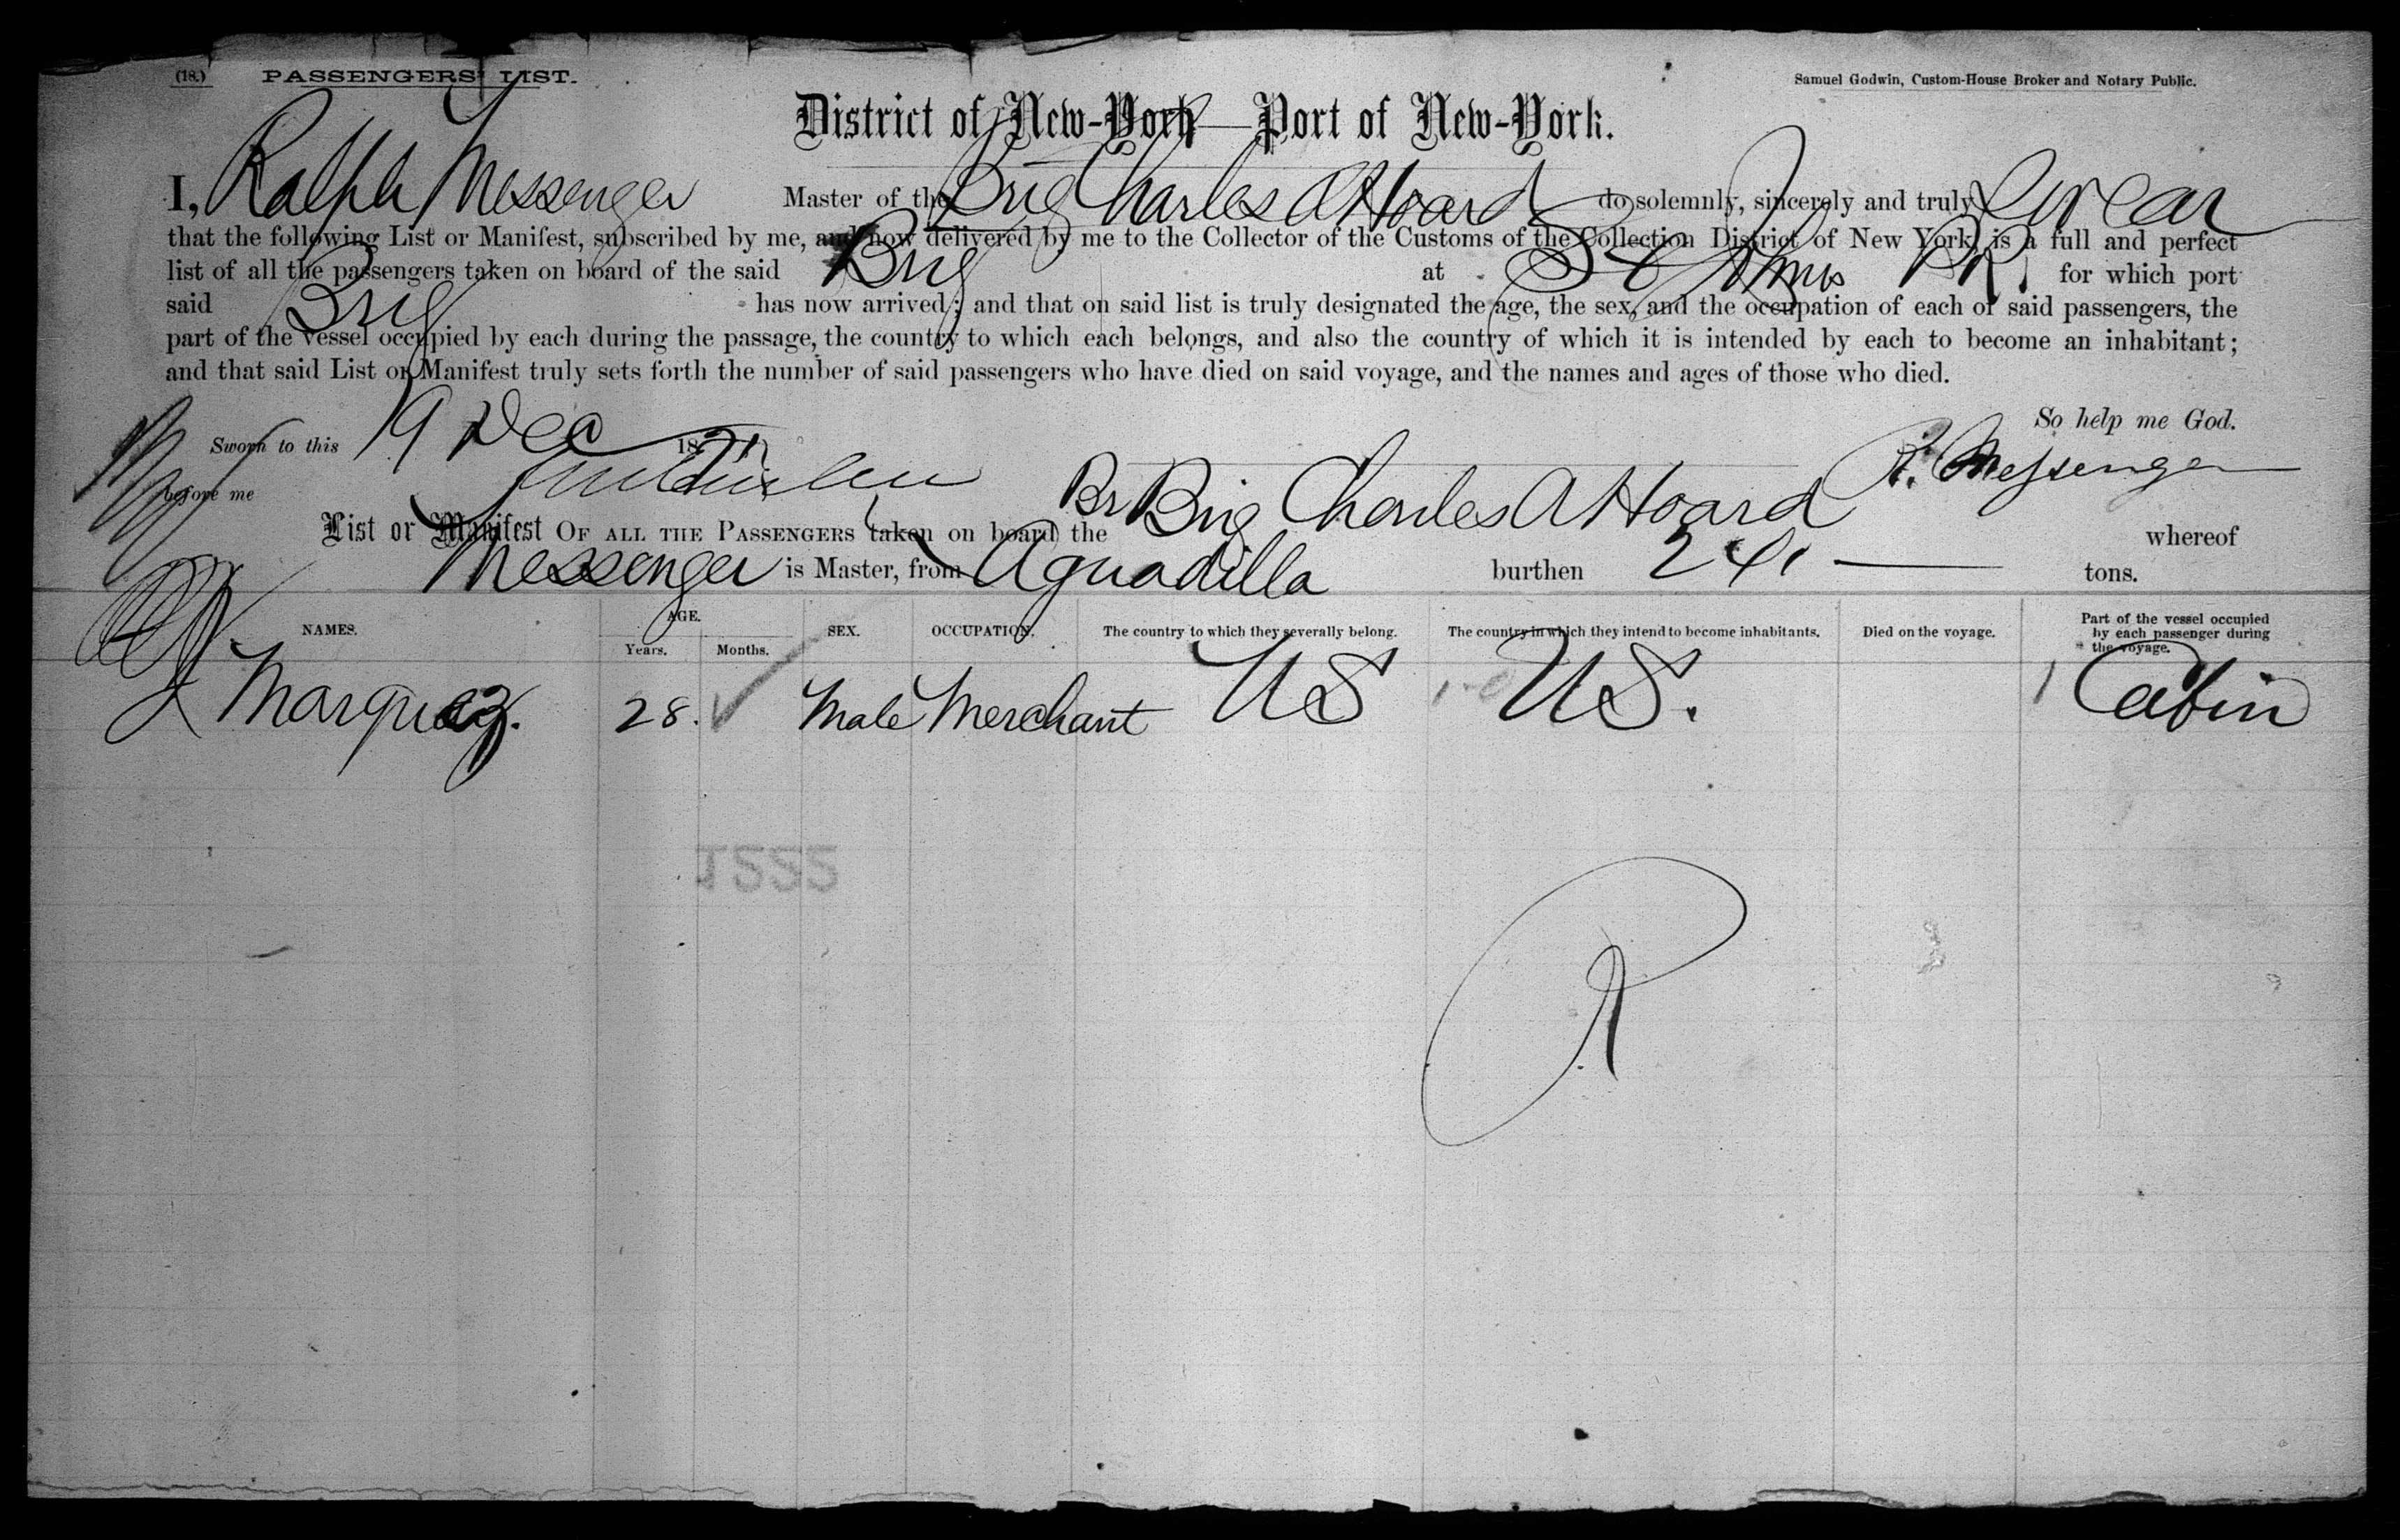 (18.) PASSENGERS' LIST.
Samuel Godwin, Custom-House Broker and Notary Public.
District of New-York—Port of New-York.
I, Ralph Messenger Master of the Brig Charles A Hoard do solemnly, sincerely and truly Swear
that the following List or Manifest, subscribed by me, and now delivered by me to the Collector of the Customs of the Collection District of New York, is a full and perfect
list of all the passengers taken on board of the said Brig at St Johns PR, for which port
said Brig has now arrived; and that on said list is truly designated the age, the sex, and the occupation of each of said passengers, the
part of the vessel occupied by each during the passage, the country to which each belongs, and also the country of which it is intended by each to become an inhabitant;
and that said List or Manifest truly sets forth the number of said passengers who have died on said voyage, and the names and ages of those who died.
So help me God.
Sworn to this 19 Dec 187
before me
R. Messenger
List or Manifest OF ALL THE PASSENGERS taken on board the Br Brig Charles A Hoard whereof
Messenger is Master, from Aguadilla burthen 241 — tons.
NAMES. AGE. Years. Months. SEX. OCCUPATION. The country to which they severally belong. The country in which they intend to become inhabitants. Died on the voyage. Part of the vessel occupied by each passenger during the voyage.
Marquez. 28. Male Merchant US US. 1 Cabin